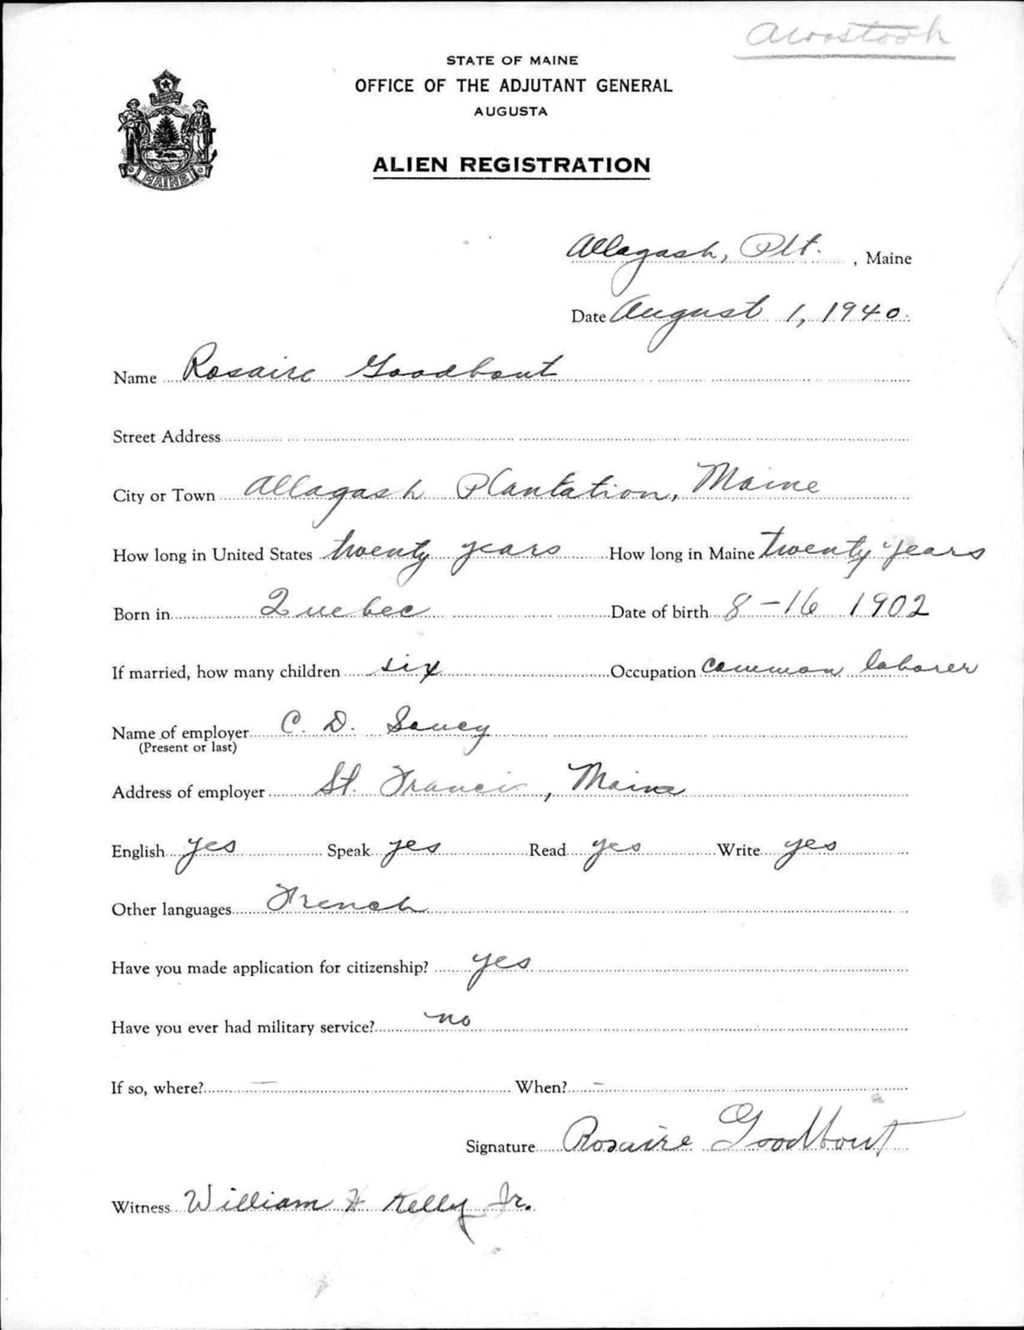 Aroostook
STATE OF MAINE
OFFICE OF THE ADJUTANT GENERAL
AUGUSTA
MAINE
ALIEN REGISTRATION
Allagash, Plt. , Maine
Date August 1, 1940
Name Rosaire Goodbout
Street Address
City or Town Allagash Plantation, Maine
How long in United States twenty years How long in Maine twenty years
Born in Quebec Date of birth 8-16 1902
If married, how many children six Occupation common laborer
Name of employer C. D. Soucy
(Present or last)
Address of employer St. Francis, Maine
English yes Speak yes Read yes Write yes
Other languages French
Have you made application for citizenship? yes
Have you ever had military service? no
If so, where? — When? –
Signature Rosaire Goodbout
Witness William H Kelly Jr.